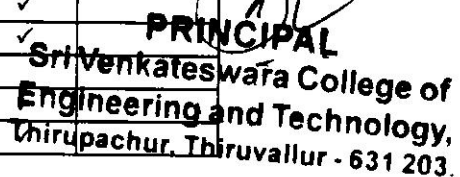 PRINCIPAL
Sri Venkateswara College of
Engineering and Technology,
Thirupachur, Thiruvallur - 631 203.